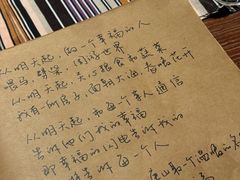 从明天起，做一个幸福的人
喂马、劈柴，周游世界
从明天起，关心粮食和蔬菜
我有一所房子，面朝大海，春暖花开
从明天起，和每个亲人通信
告诉他们我的幸福
那幸福的闪电告诉我的
每一个人